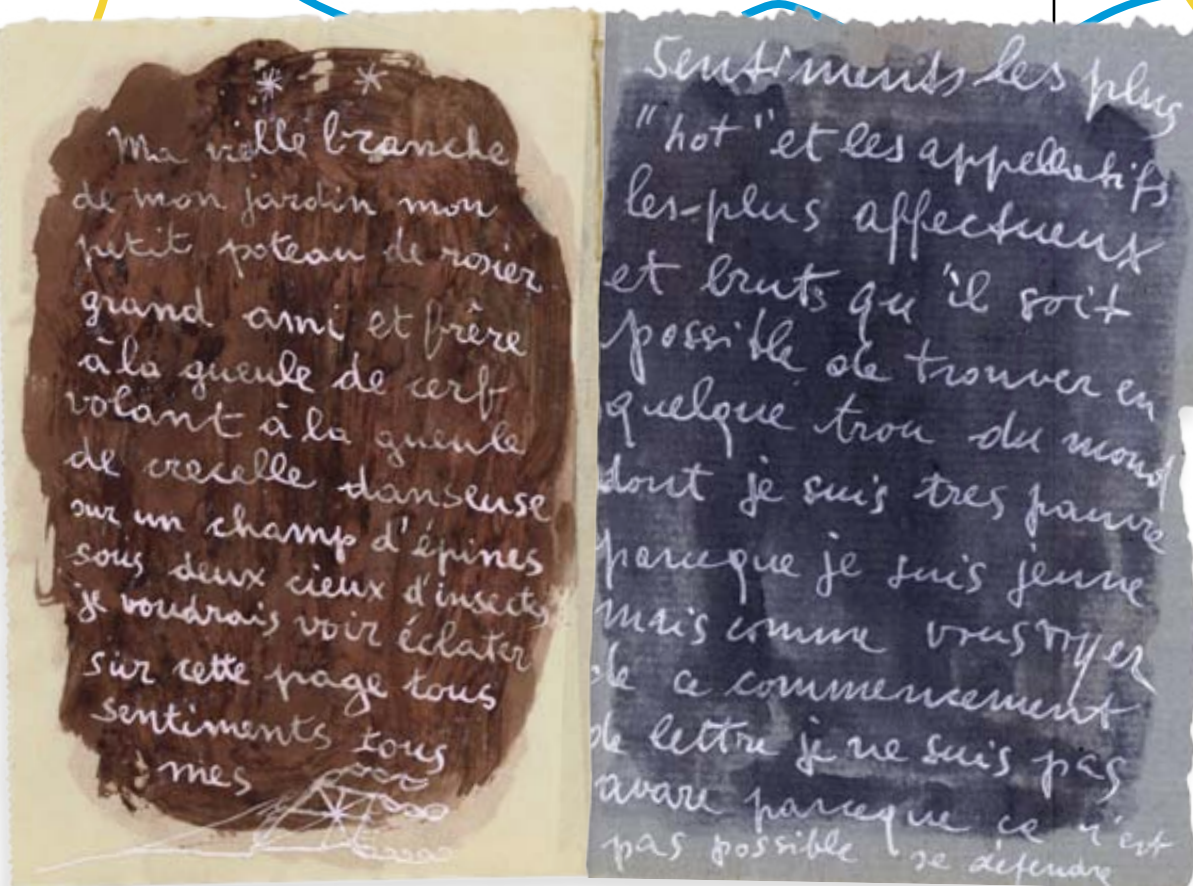 Ma vielle branche
de mon jardin mon
petit poteau de rosier
grand ami et frère
à la gueule de cerf
volant à la gueule
de crecelle danseuse
sur un champ d'épines
sous deux cieux d'insectes
je voudrais voir éclater
sur cette page tous
sentiments tous
mes
Sentiments les plus
"hot" et les appellatifs
les-plus affectueux
et bruts qu'il soit
possible de trouver en
quelque trou du mond
dont je suis tres pauvre
parceque je suis jeune
mais comme vous voyez
de ce commencement
de lettre je ne suis pas
avare parceque ce n'est
pas possible se défendre